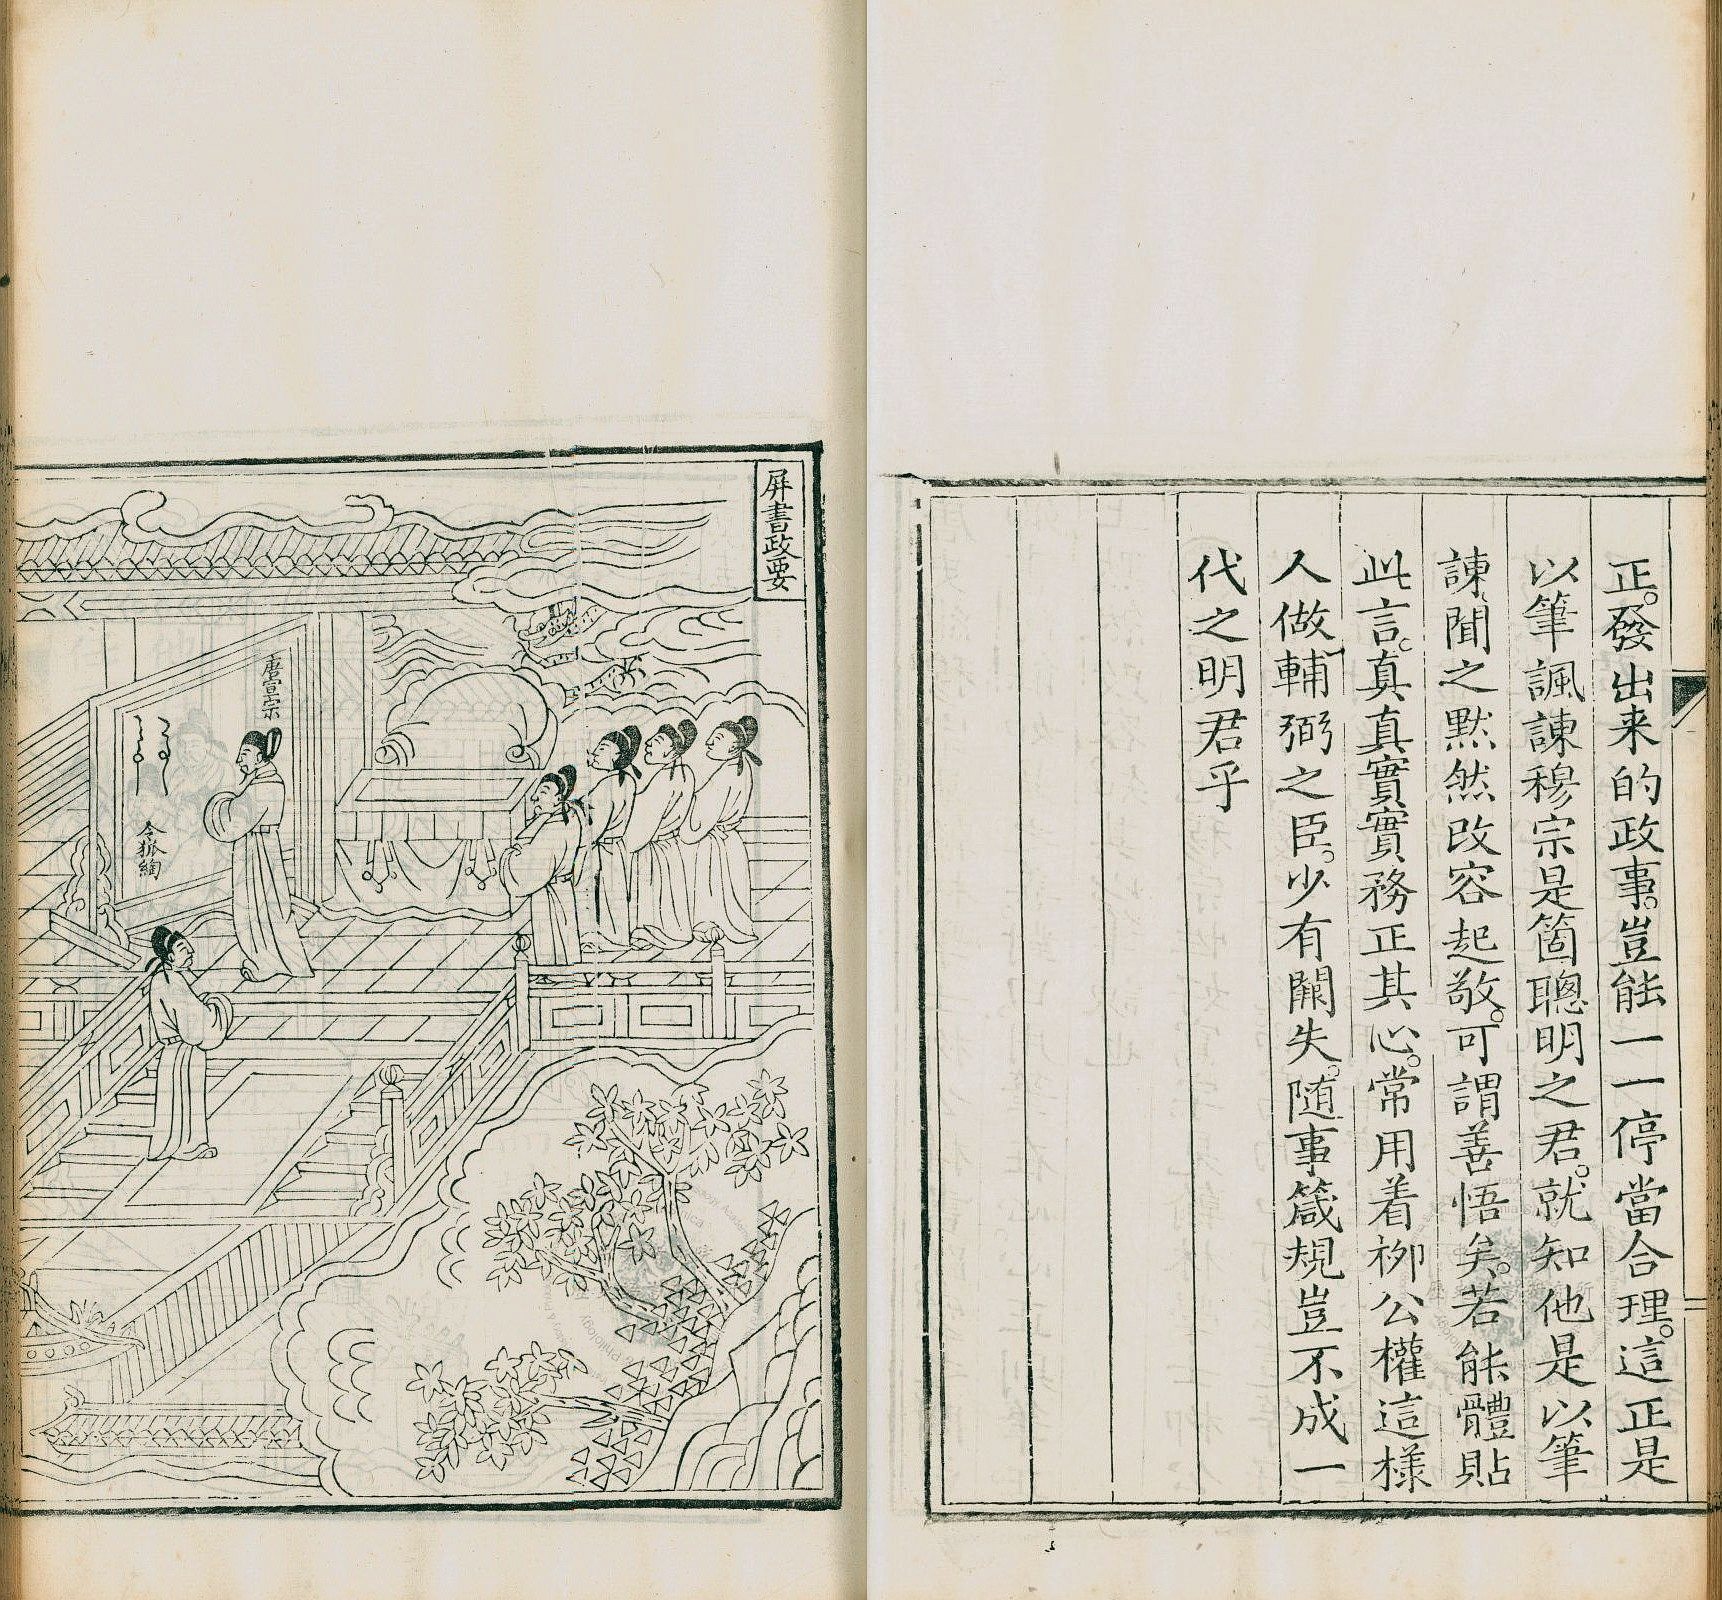 正。發出来的政事。豈能一一停當合理。這正是
以筆諷諫穆宗是箇聰明之君。就知他是以筆
諫聞之黙然改容起敬。可謂善悟矣。若能體貼
此言。真真實實務正其心。常用着栁公權這様
人做輔弼之臣。少有闕失。随事箴規豈不成一
代之明君乎
屏書政要
唐宣宗
令狐綯